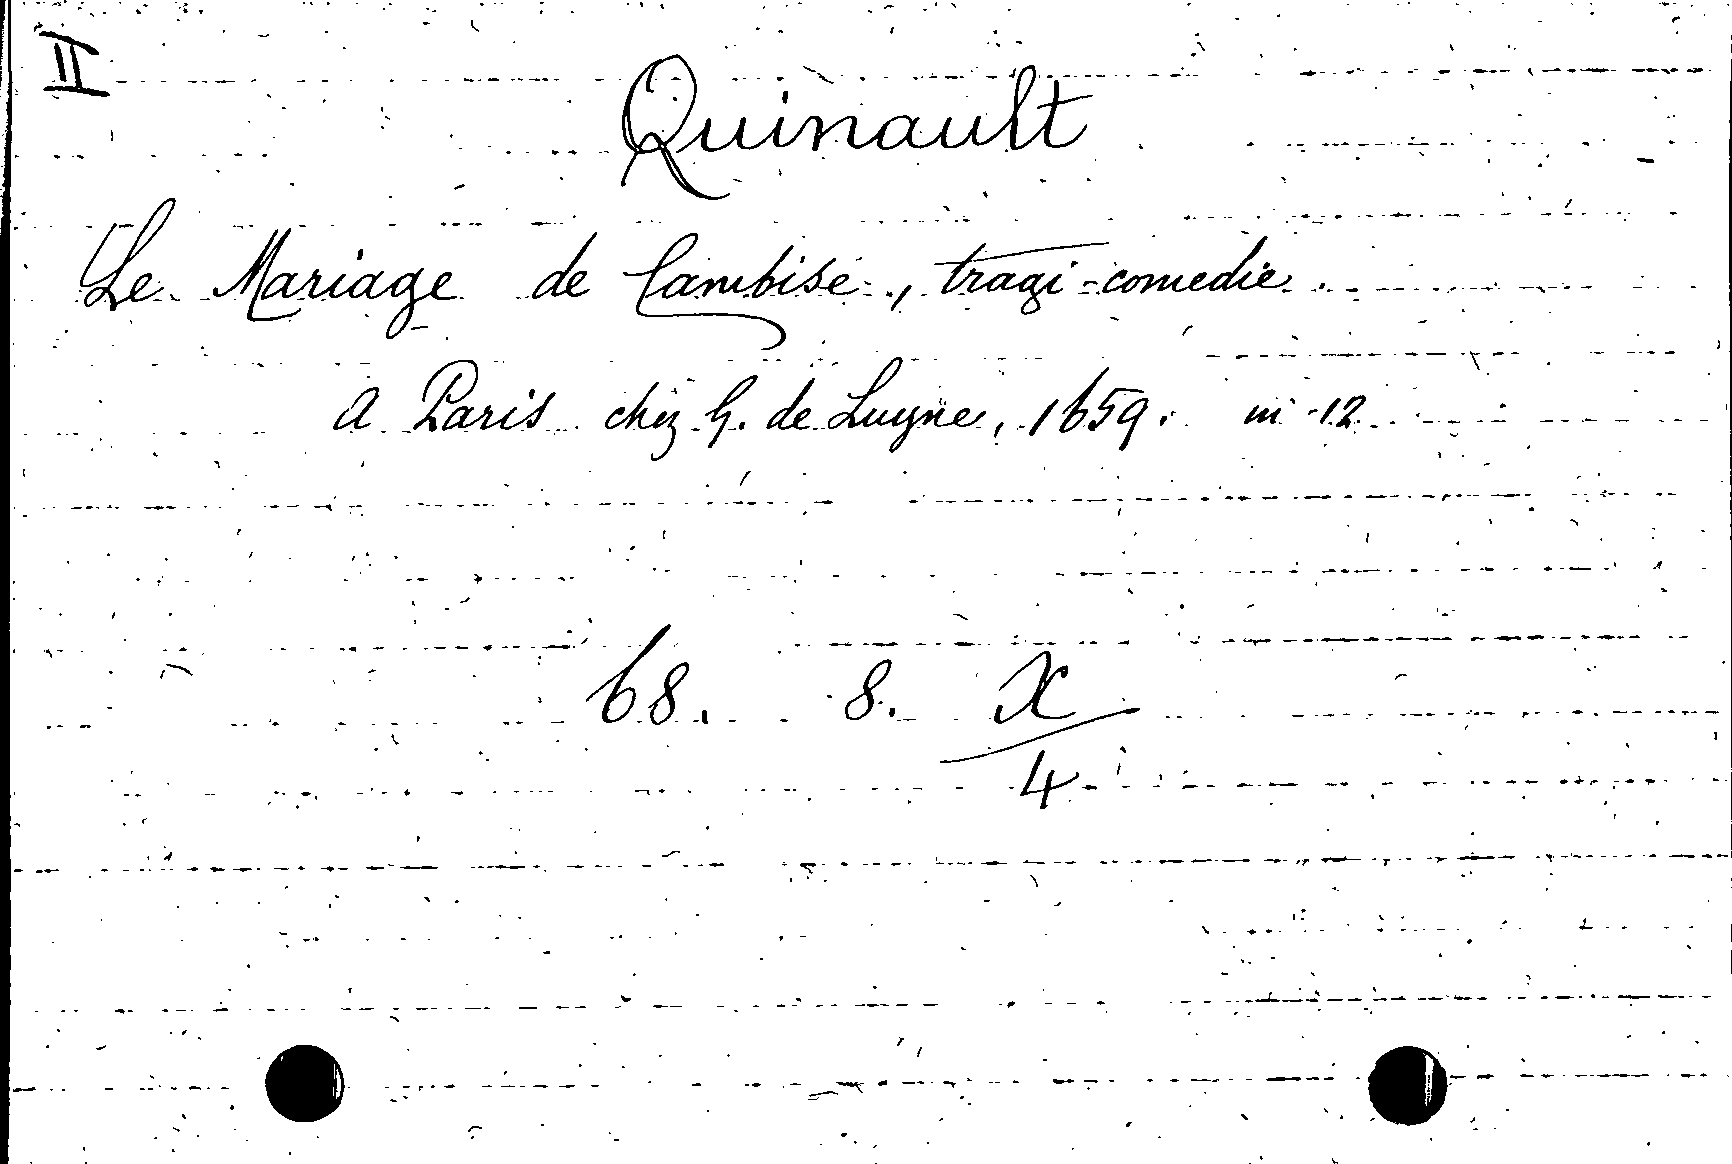 II
Quinault
Le Mariage de Cambise, tragi-comedie
a Paris chez G. de Luyne, 1659. in-12
68. 8. X
4